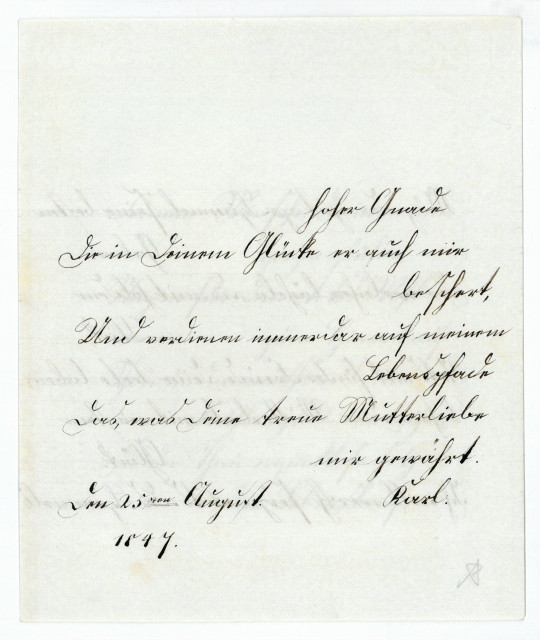 hoher Gnade
Die in Deinem Glücke er auch mir
beschert,
Und verdienen immerdar auf meinem
Lebenspfade
Das, was Deine treue Mutterliebe
mir gewährt.
Den 25ten August. Karl.
1847.